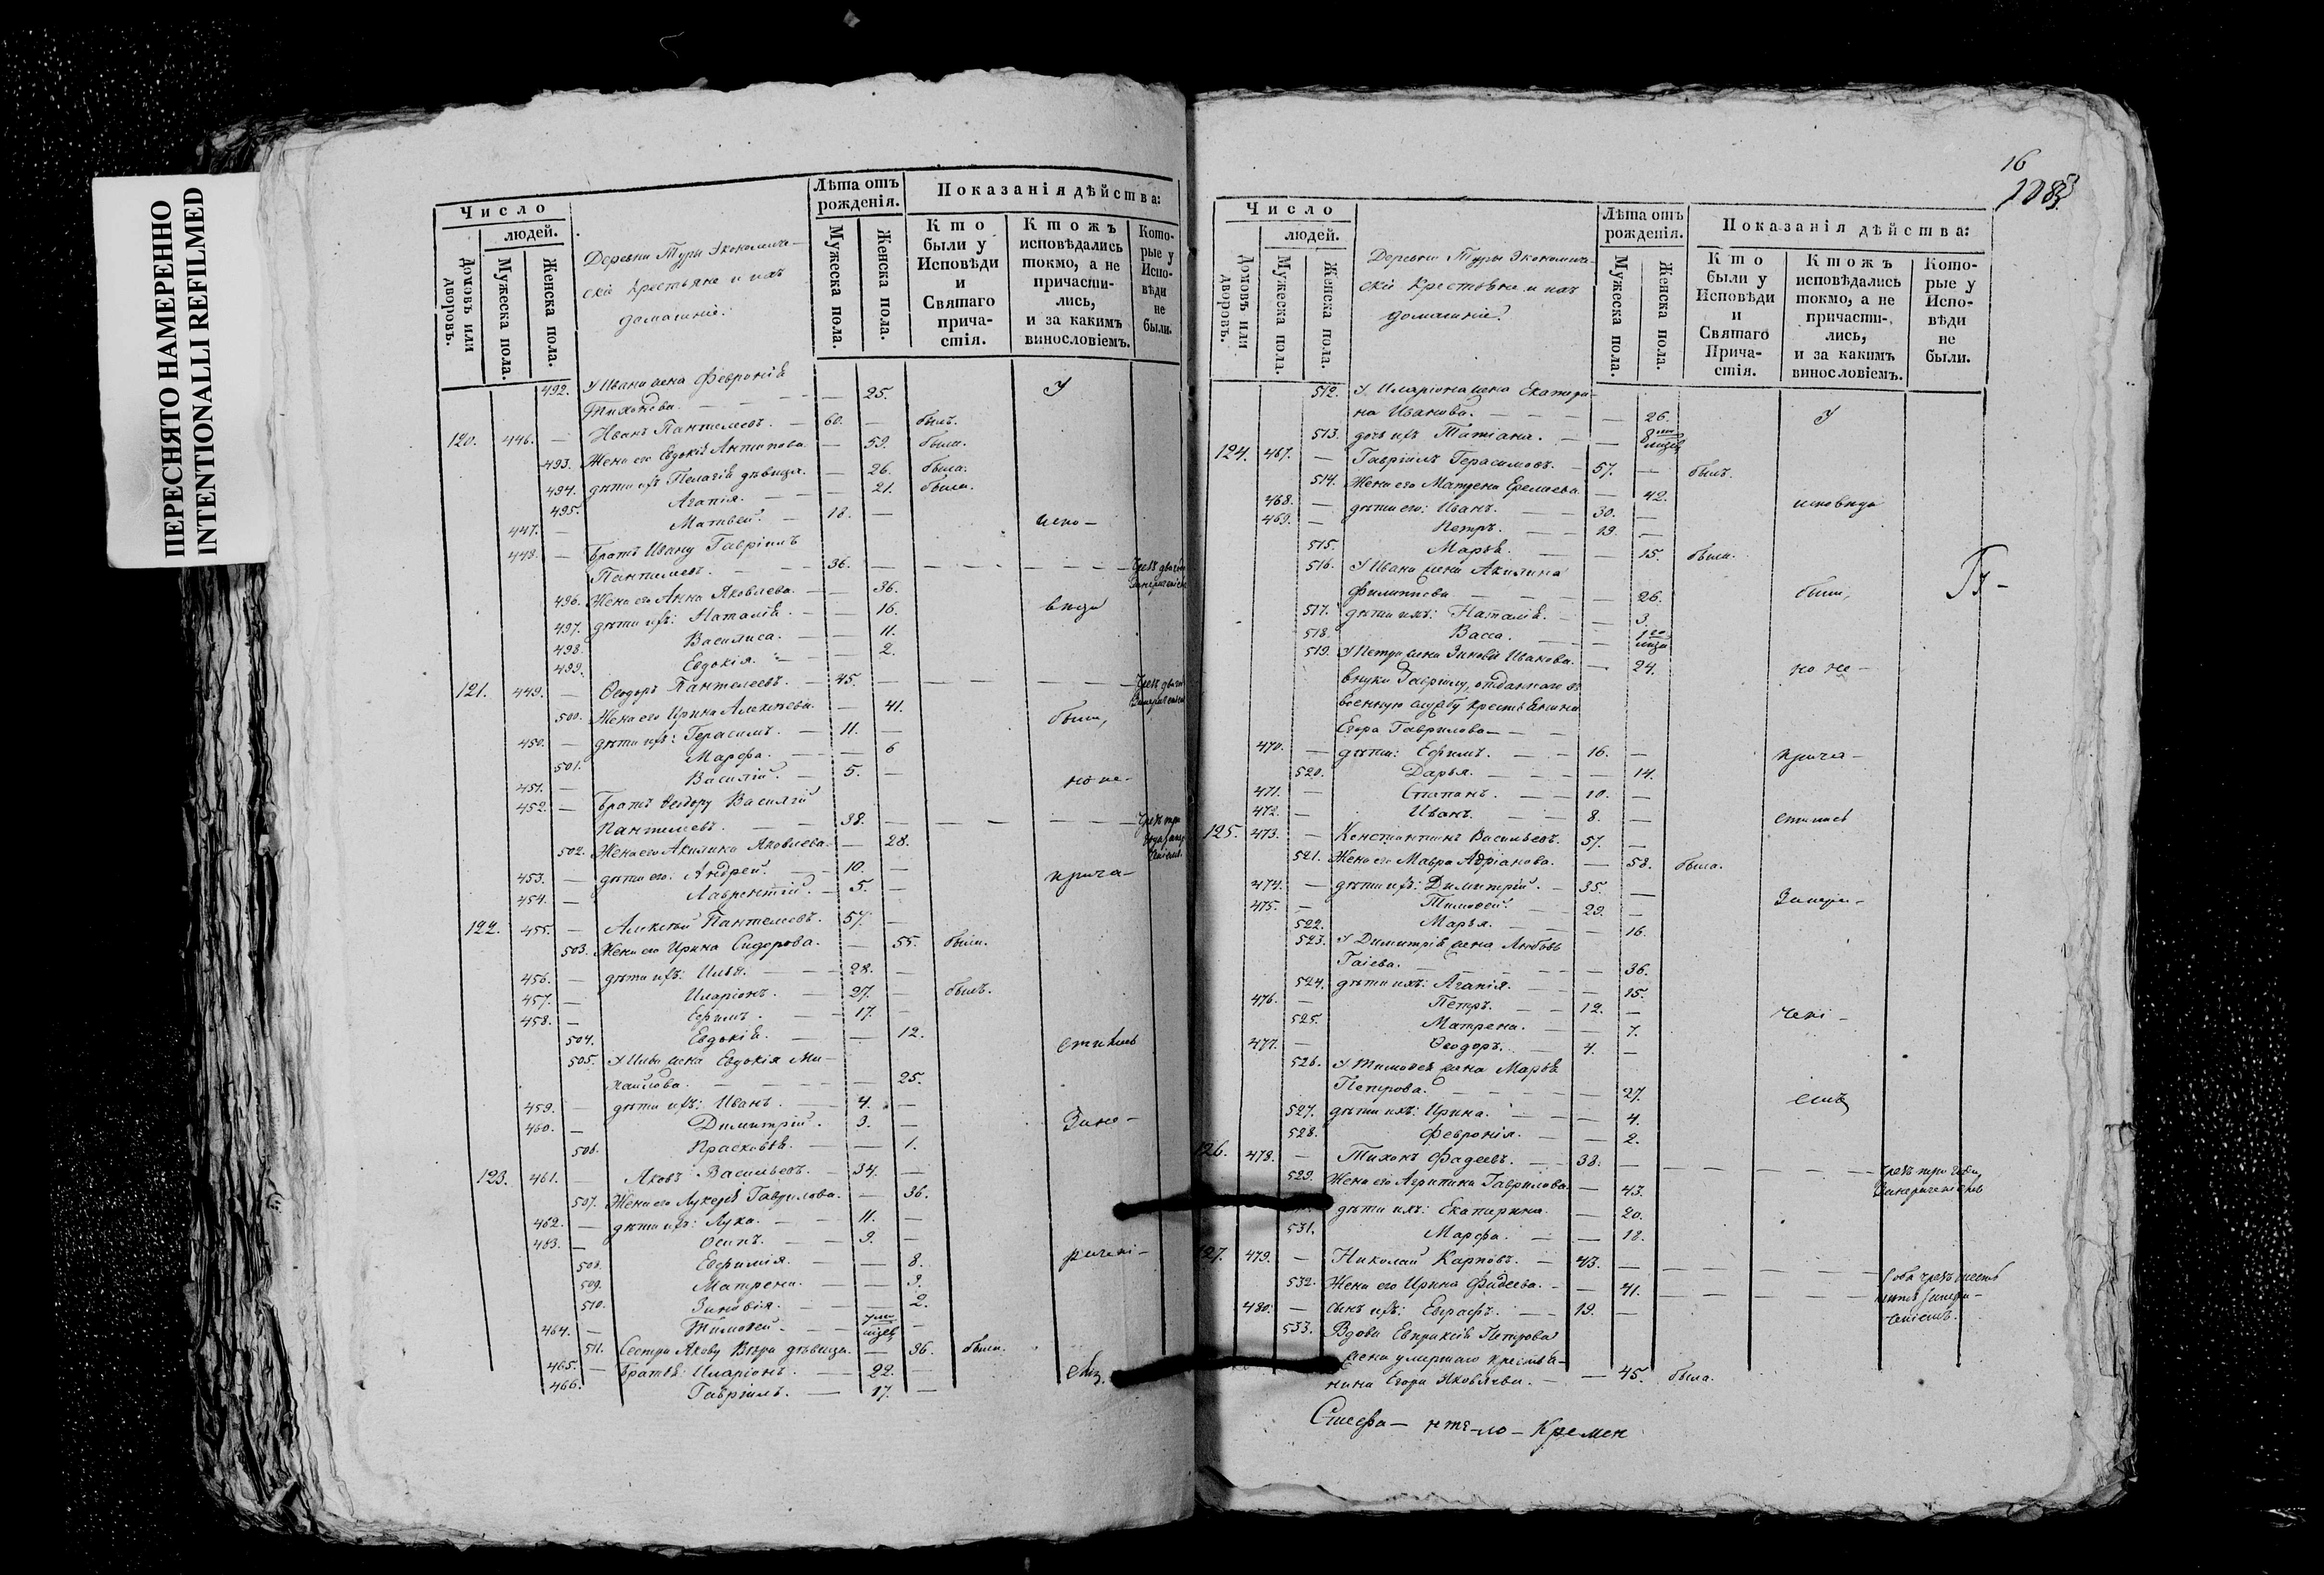 ПЕРЕСНЯТО НАМЕРЕННО
INTENTIONALLI REFILMED
Число
людей.
Домовъ или дворовъ.
Мужеска пола.
Женска пола.
Деревни Туры Экономиче-
скіе Крестьяне и ихъ
домашніе:
Лѣта отъ
рожденія.
Мужеска пола.
Женска пола.
Показанія дѣйства:
Кто
были у
Исповѣди
и
Святаго
прича-
стія.
Ктожъ
исповѣдались
токмо, а не
причасти-
лись,
и за какимъ
винословіемъ.
Кото-
рые у
Испо-
вѣди
не
были.
492. У Ивана жена Февронія
Тихонова. — — 25. У
120. 446. — Иванъ Пантелеевъ. — 60. — былъ.
493. Жена его Евдокія Антипова. — 59. была.
494. дѣти ихъ Пелагія дѣвица. — 26. была.
495. Агапія. — — 21. была.
447. — Матвей. — 18. — испо-
448. — Братъ Ивану Гавріилъ
Пантелеевъ. — 36. —
496. Жена его Анна Яковлева. — 36.
497. дѣти ихъ: Наталія. — — 16. вѣда
498. Василиса. — — 11.
499. Евдокія. — — 2.
121. 449. — Ѳеодоръ Пантелеевъ. — 45. —
500. Жена его Ирина Алексѣева. — 41.
450. — дѣти ихъ: Герасимъ. — 11. — были,
501. Марфа. — — 6
451. — Василій. — 5. — но не-
452. — Братъ Ѳеодору Василій
Пантелеевъ. — 38. —
502. Жена его Акилина Яковлева. — 28.
453. — дѣти его: Андрей. — 10. — прича-
454. — Лаврентій. — 5. —
122. 455. — Алексѣй Пантелеевъ. 57. —
503. Жена его Ирина Сидорова. — 55. была.
456. — дѣти ихъ: Илья. — 28. —
457. — Иларіонъ. — 27. — былъ.
458. — Ефимъ. — 17. —
504. Евдокія. — — 12.
505. У Ильи жена Евдокія Ми- стились
хайлова. — — 25.
459. — дѣти ихъ: Иванъ. — 4. —
460. — Димитрій. — 3. —
506. Прасковья. — — 1.
123. 461. — Яковъ Васильевъ. — 34. —
507. Жена его Лукерья Гаврилова. — 36.
462. — дѣти ихъ: Лука. — 11. —
483. — Осипъ. — 9. —
508. Евфимія. — — 8.
509. Матрена. — — 3.
510. Зиновія. — — 2.
464. — Тимоѳей. —
511. Сестра Якову Вѣра дѣвица. — 36. была.
465. — Братья: Иларіонъ. — 22. —
466. Гавріилъ. — 17. —
16
Число
людей.
Домовъ или дворовъ.
Мужеска пола.
Женска пола.
Деревни Туры Экономиче-
скіе Крестьяне и ихъ
домашніе:
Лѣта отъ
рожденія.
Мужеска пола.
Женска пола.
Показанія дѣйства:
Кто
были у
Исповѣди
и
Святаго
Прича-
стія.
Ктожъ
исповѣдались
токмо, а не
причасти-
лись,
и за какимъ
винословіемъ.
Кото-
рые у
Испо-
вѣди
не
были.
512. У Иларіона жена Екатери-
на Иванова. — — 26. У
513. дочь ихъ Татіана. —
124. 467. — Гавріилъ Герасимовъ. — 57. — былъ.
514. Жена его Матрена Еремеева. — 42.
468. — дѣти его: Иванъ. — 30. — исповѣда
469. — Петръ. — 19. —
515. Марья. — — 15. была.
516. У Ивана жена Акилина
Филиппова — — 26. были,
517. дѣти ихъ: Наталія. — — 3.
518. Васса. —
519. У Петра жена Зиновія Иванова. — 24. но не-
внуки Гаврилу, отданнаго въ
военную службу крестьянина
Егора Гаврилова —
470. — дѣти: Ефимъ. — 16. — прича-
520. Дарья. — — 14.
471. — Степанъ. — 10. —
472. — Иванъ. — 8. — стились
125. 473. — Константинъ Васильевъ. 57. —
521. Жена его Мавра Адріанова. — 58. была.
474. — дѣти ихъ: Димитрій. — 35. —
475. — Тимоѳей. — 29. —
522. Марья. — — 16.
523. У Димитрія жена Любовь
Гаіева. — — 36.
524. дѣти ихъ: Агапія. — — 15.
476. — Петръ. — 12. — чені-
525. Матрена. — — 7.
477. — Ѳеодоръ. — 4. —
526. У Тимоѳея жена Марья
Петрова. — — 27. емъ
527. дѣти ихъ: Ирина. — — 4.
528. Февронія. — — 2.
126. 478. — Тихонъ Фадеевъ. — 38. —
529. Жена его Агрипина Гаврилова. — 43.
дѣти ихъ: Екатерина. — 20.
531. Марфа. — — 18.
127. 479. — Николай Карповъ. — 43. —
532. Жена его Ирина Фадеева. — — 41.
480. — сынъ ихъ: Евграфъ. — 19. —
533. Вдова Евпраксія Петрова
жена умершаго крестья-
нина Егора Яковлева. — — 45. была.